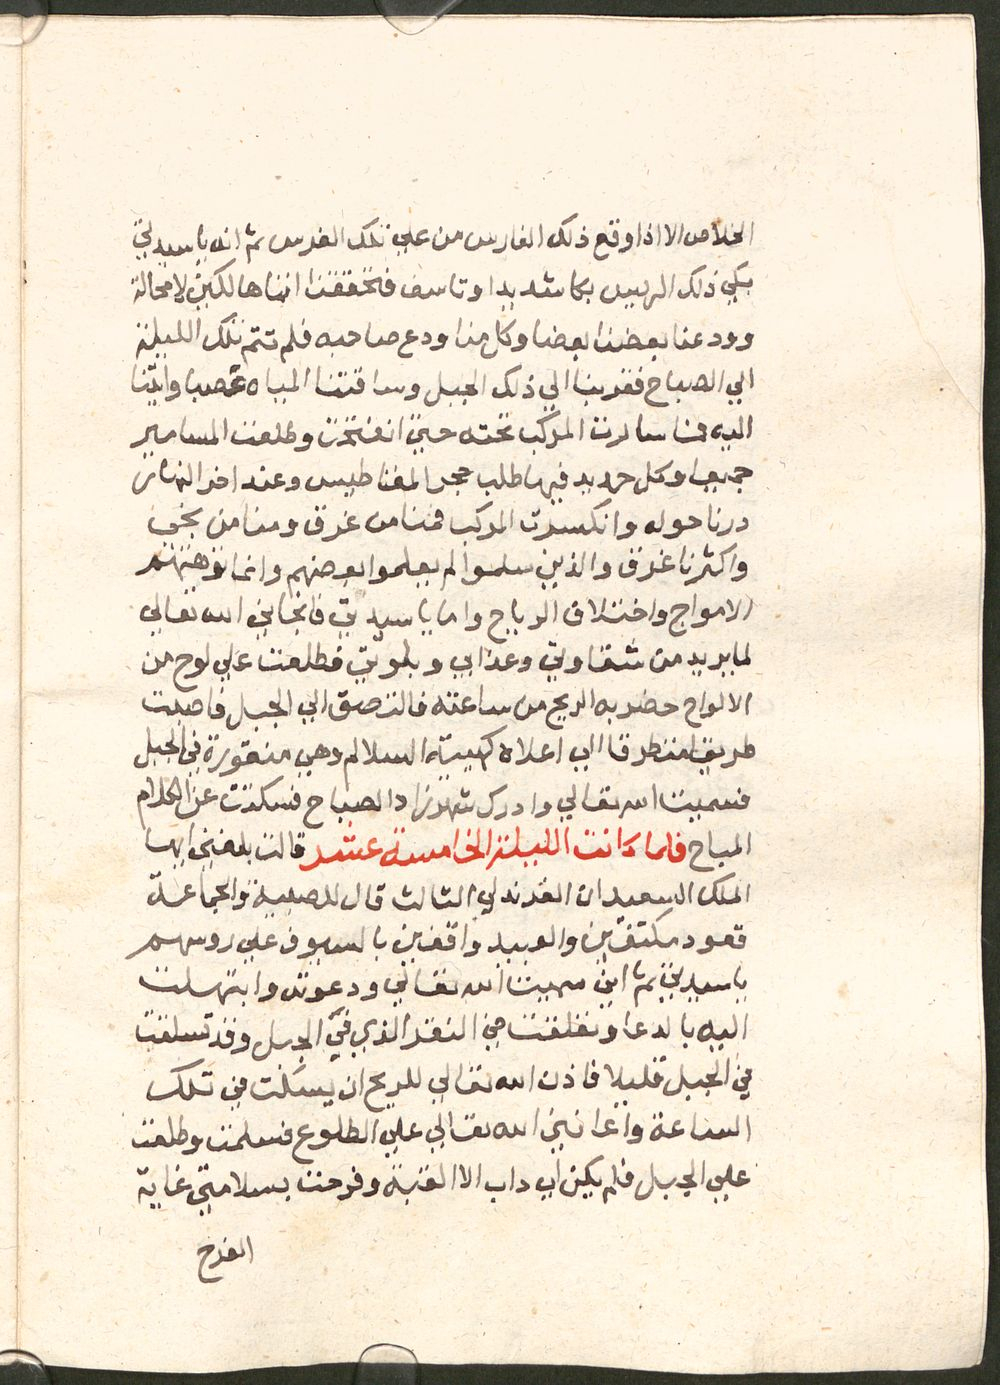 الخلاص الا اذا وقع ذلك الفارس من علي تلك الفرس ثم انه يا سيدتي
بكي ذلك الريس بكا شديدا وتاسف فتحققنا اننا هالكين لا محالة
وودعنا بعضنا بعضا وكل منا ودع صاحبه فلم تتم تلك الليلة
الي الصباح فقربنا الي ذلك الجبل وساقتنا المياه غصبا واتينا
اليه فما سارت المركب تحته حتي انفتحت وطلعت المسامير
جميعا وكل حديد فيها طلب حجر المغناطيس وعند اخر النهار
درنا حوله وانكسرت المركب فمنا من غرق ومنا من نجي
واكثرنا غرق والذين سلموا لم يعلموا بعضهم وانما توهتهم
الامواج واختلاف الرياح واما يا سيدتي فانجاني الله تعالي
لما يريد من شقاوتي وعذابي وبلوتي فطلعت علي لوح من
الالواح فضربه الريح من ساعته فالتصق الي الجبل فاصبت
طريق متطرقا الي اعلاه كهيئة السلالم وهي منقورة في الجبل
فسميت الله تعالي وادرك شهرزاد الصباح فسكتت عن الكلام
المباح فلما كانت الليلة الخامسة عشر قالت بلغني ايها
الملك السعيد ان القرندلي الثالث قال للصبية والجماعة
قعود مكتفين والعبيد واقفين بالسيوف علي روسهم
يا سيدتي ثم اني سميت الله تعالي ودعوته وابتهلت
اليه بالدعا وتعلقت في النقر الذي في الجبل وقد تسلقت
في الجبل قليلا فاذن الله تعالي للريح ان يسكت في تلك
الساعة واعانني الله تعالي علي الطلوع فسلمت وطلعت
علي الجبل فلم يكن لي داب الا القبة وفرحت بسلامتي غاية
الفرح